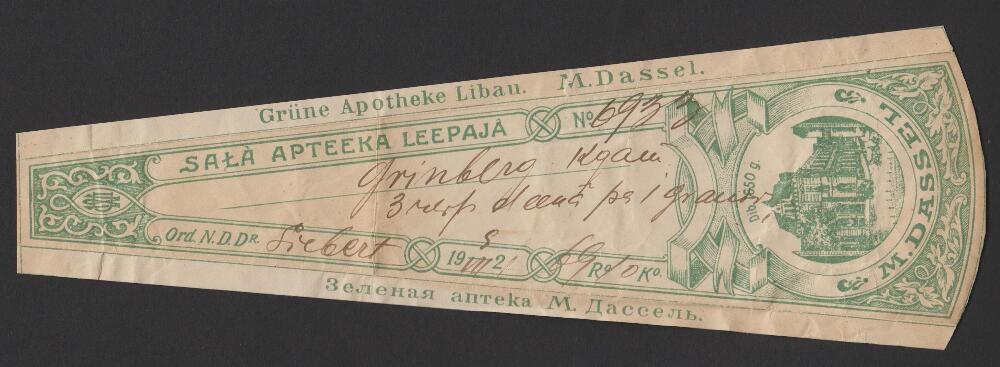 Grüne Apotheke Libau. M. Dassel.
SAŁÀ APTEEKA LEEPAJÀ
№ 6933
Grinberg kgam
3 reis deenā pa 1 gramu
Ord. N. D. DR. Siebert
19 5/VII 2
Ro. Ko.
dib. 1850 g.
M. DASSEL
Зеленая аптека М. Дассель.